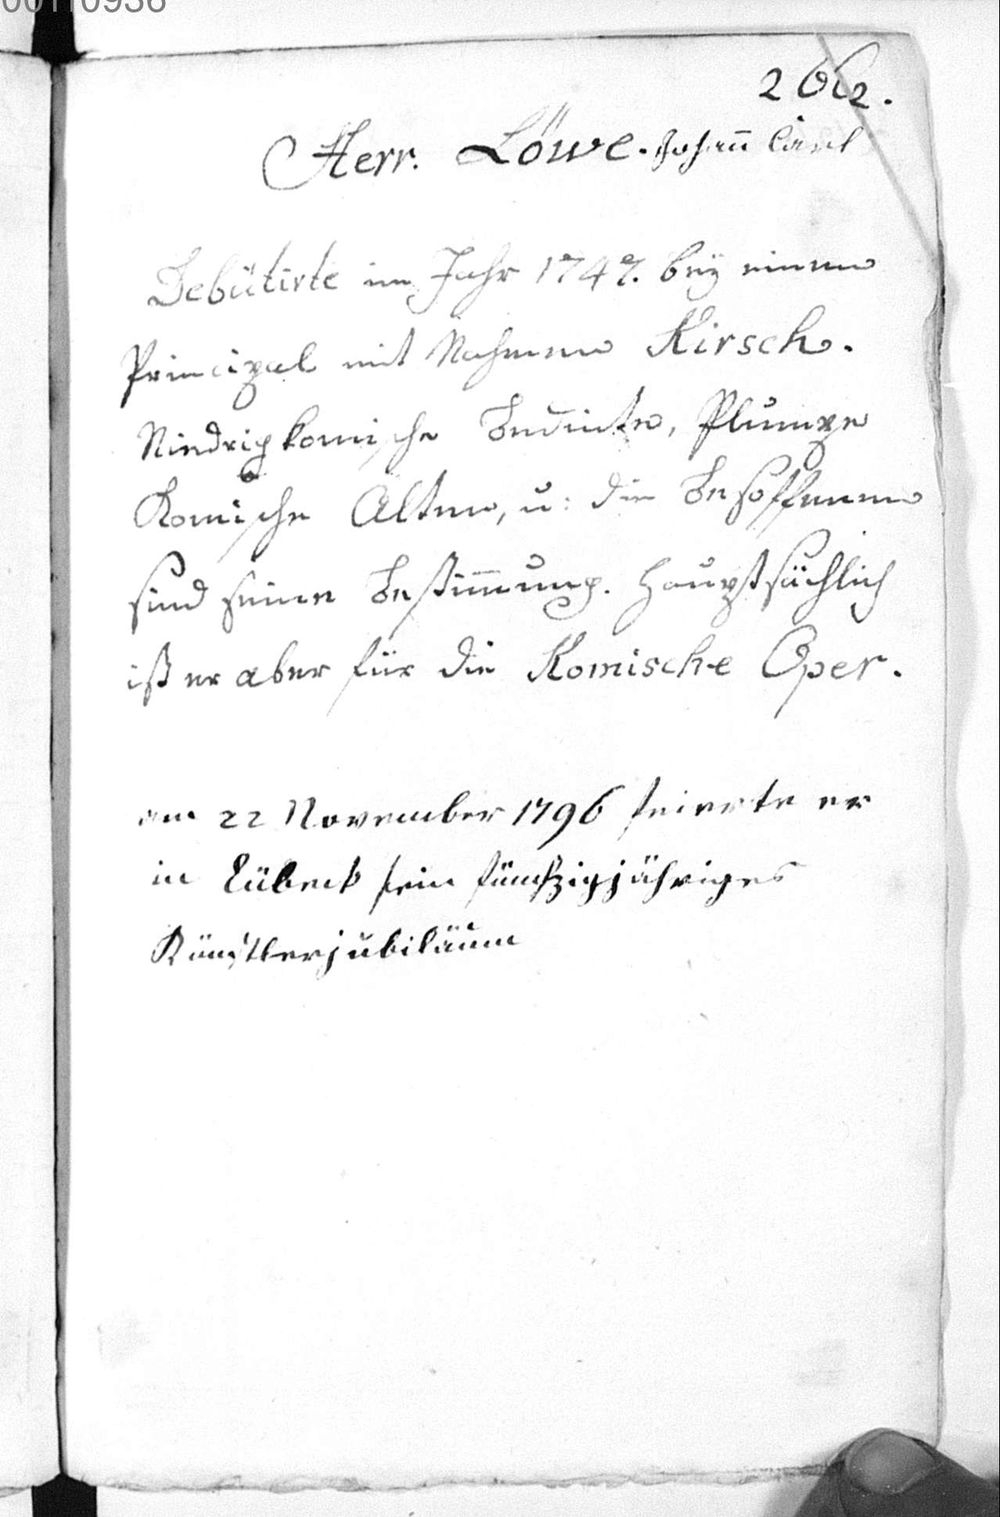 00110936
262.
Herr. Löwe. Johañ Carl
Debütirte im Jahr 1747. beÿ einem
Principal mit Nahmen Kirsch.
Niedrigkomische Bedinte, Plumpe
Komische Alten, u: die Besoffenen
sind seine Bestim̃ung. Hauptsächlich
ist er aber für die Komische Oper.
am 22 November 1796 feierte er
in Lübeck sein fünfzigjähriges
Künstlerjubiläum